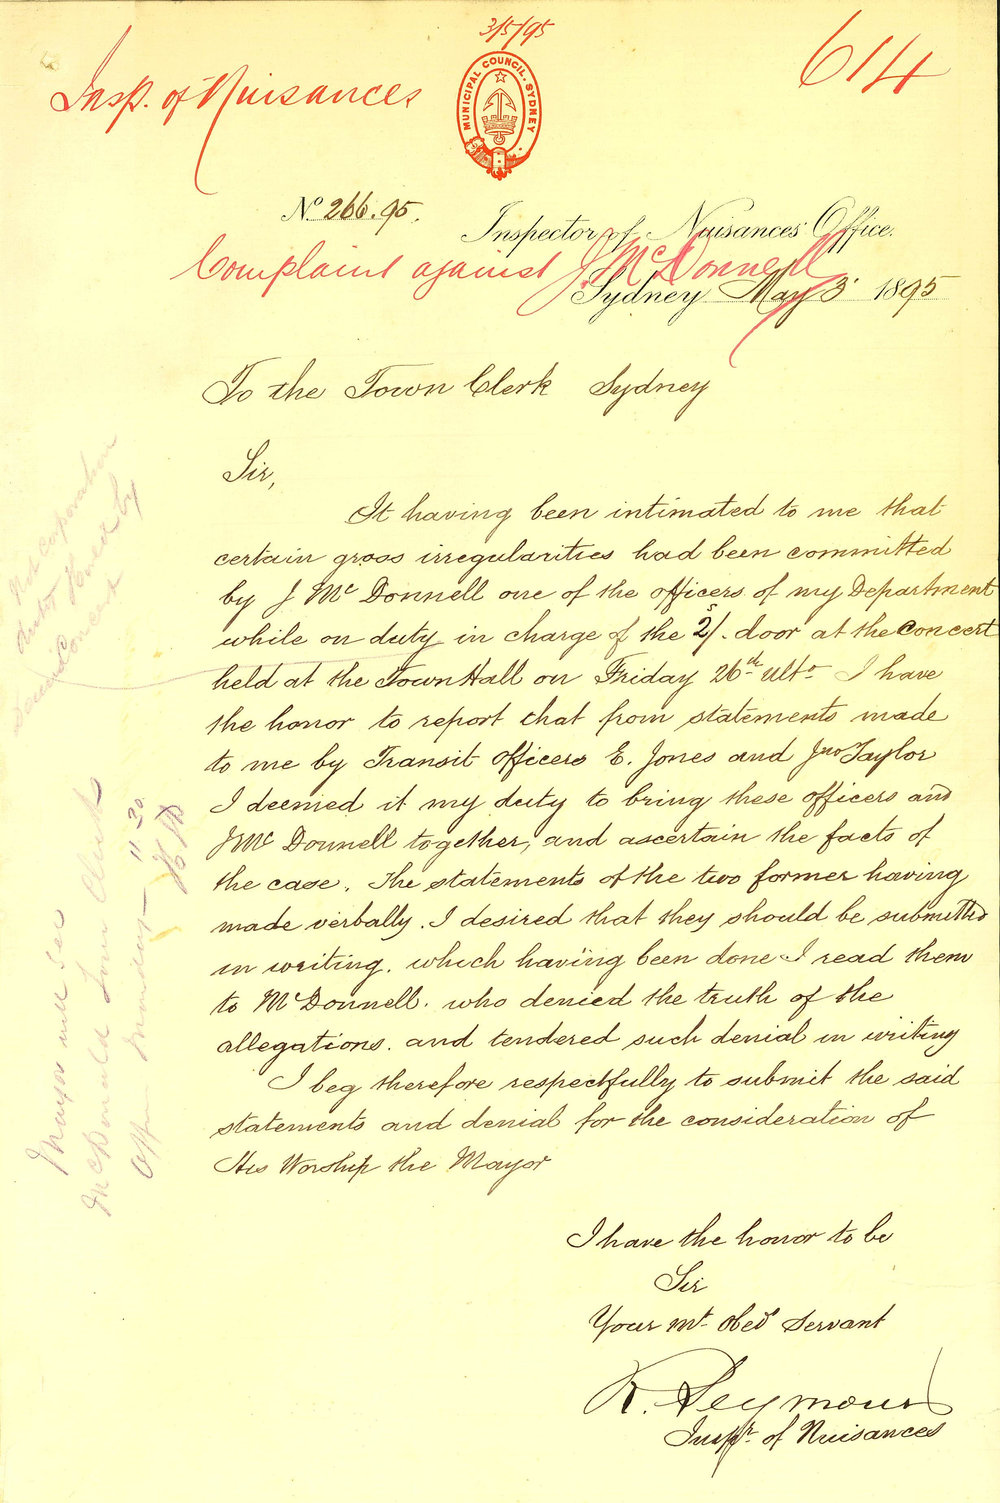 3/5/95
614
Insp. of Nuisances
MUNICIPAL COUNCIL. SYDNEY
No 266.95.
Inspector of Nuisances' Office.
Complaint against J. McDonnell
Sydney May 3 1895
To the Town Clerk Sydney
Sir,
It having been intimated to me that
certain gross irregularities had been committed
by J McDonnell one of the officers of my Department
while on duty in charge of the 2s/. door at the Concert
held at the Town Hall on Friday 26th ulto I have
the honor to report that from statements made
to me by Transit officers E. Jones and Jno Taylor
I deemed it my duty to bring these officers and
J McDonnell together, and ascertain the facts of
the case. The statements of the two former having
made verbally. I desired that they should be submitted
in writing. which having been done I read them
to McDonnell. who denied the truth of the
allegations. and tendered such denial in writing
I beg therefore respectfully to submit the said
statements and denial for the consideration of
His Worship the Mayor
I have the honor to be
Sir
Your mt Obedt Servant
R. Seymour
Inspr. of Nuisances
Not Corporation
duty
by
Concert
Mayor will see
McDonald Town Clerk
Monday 11 30